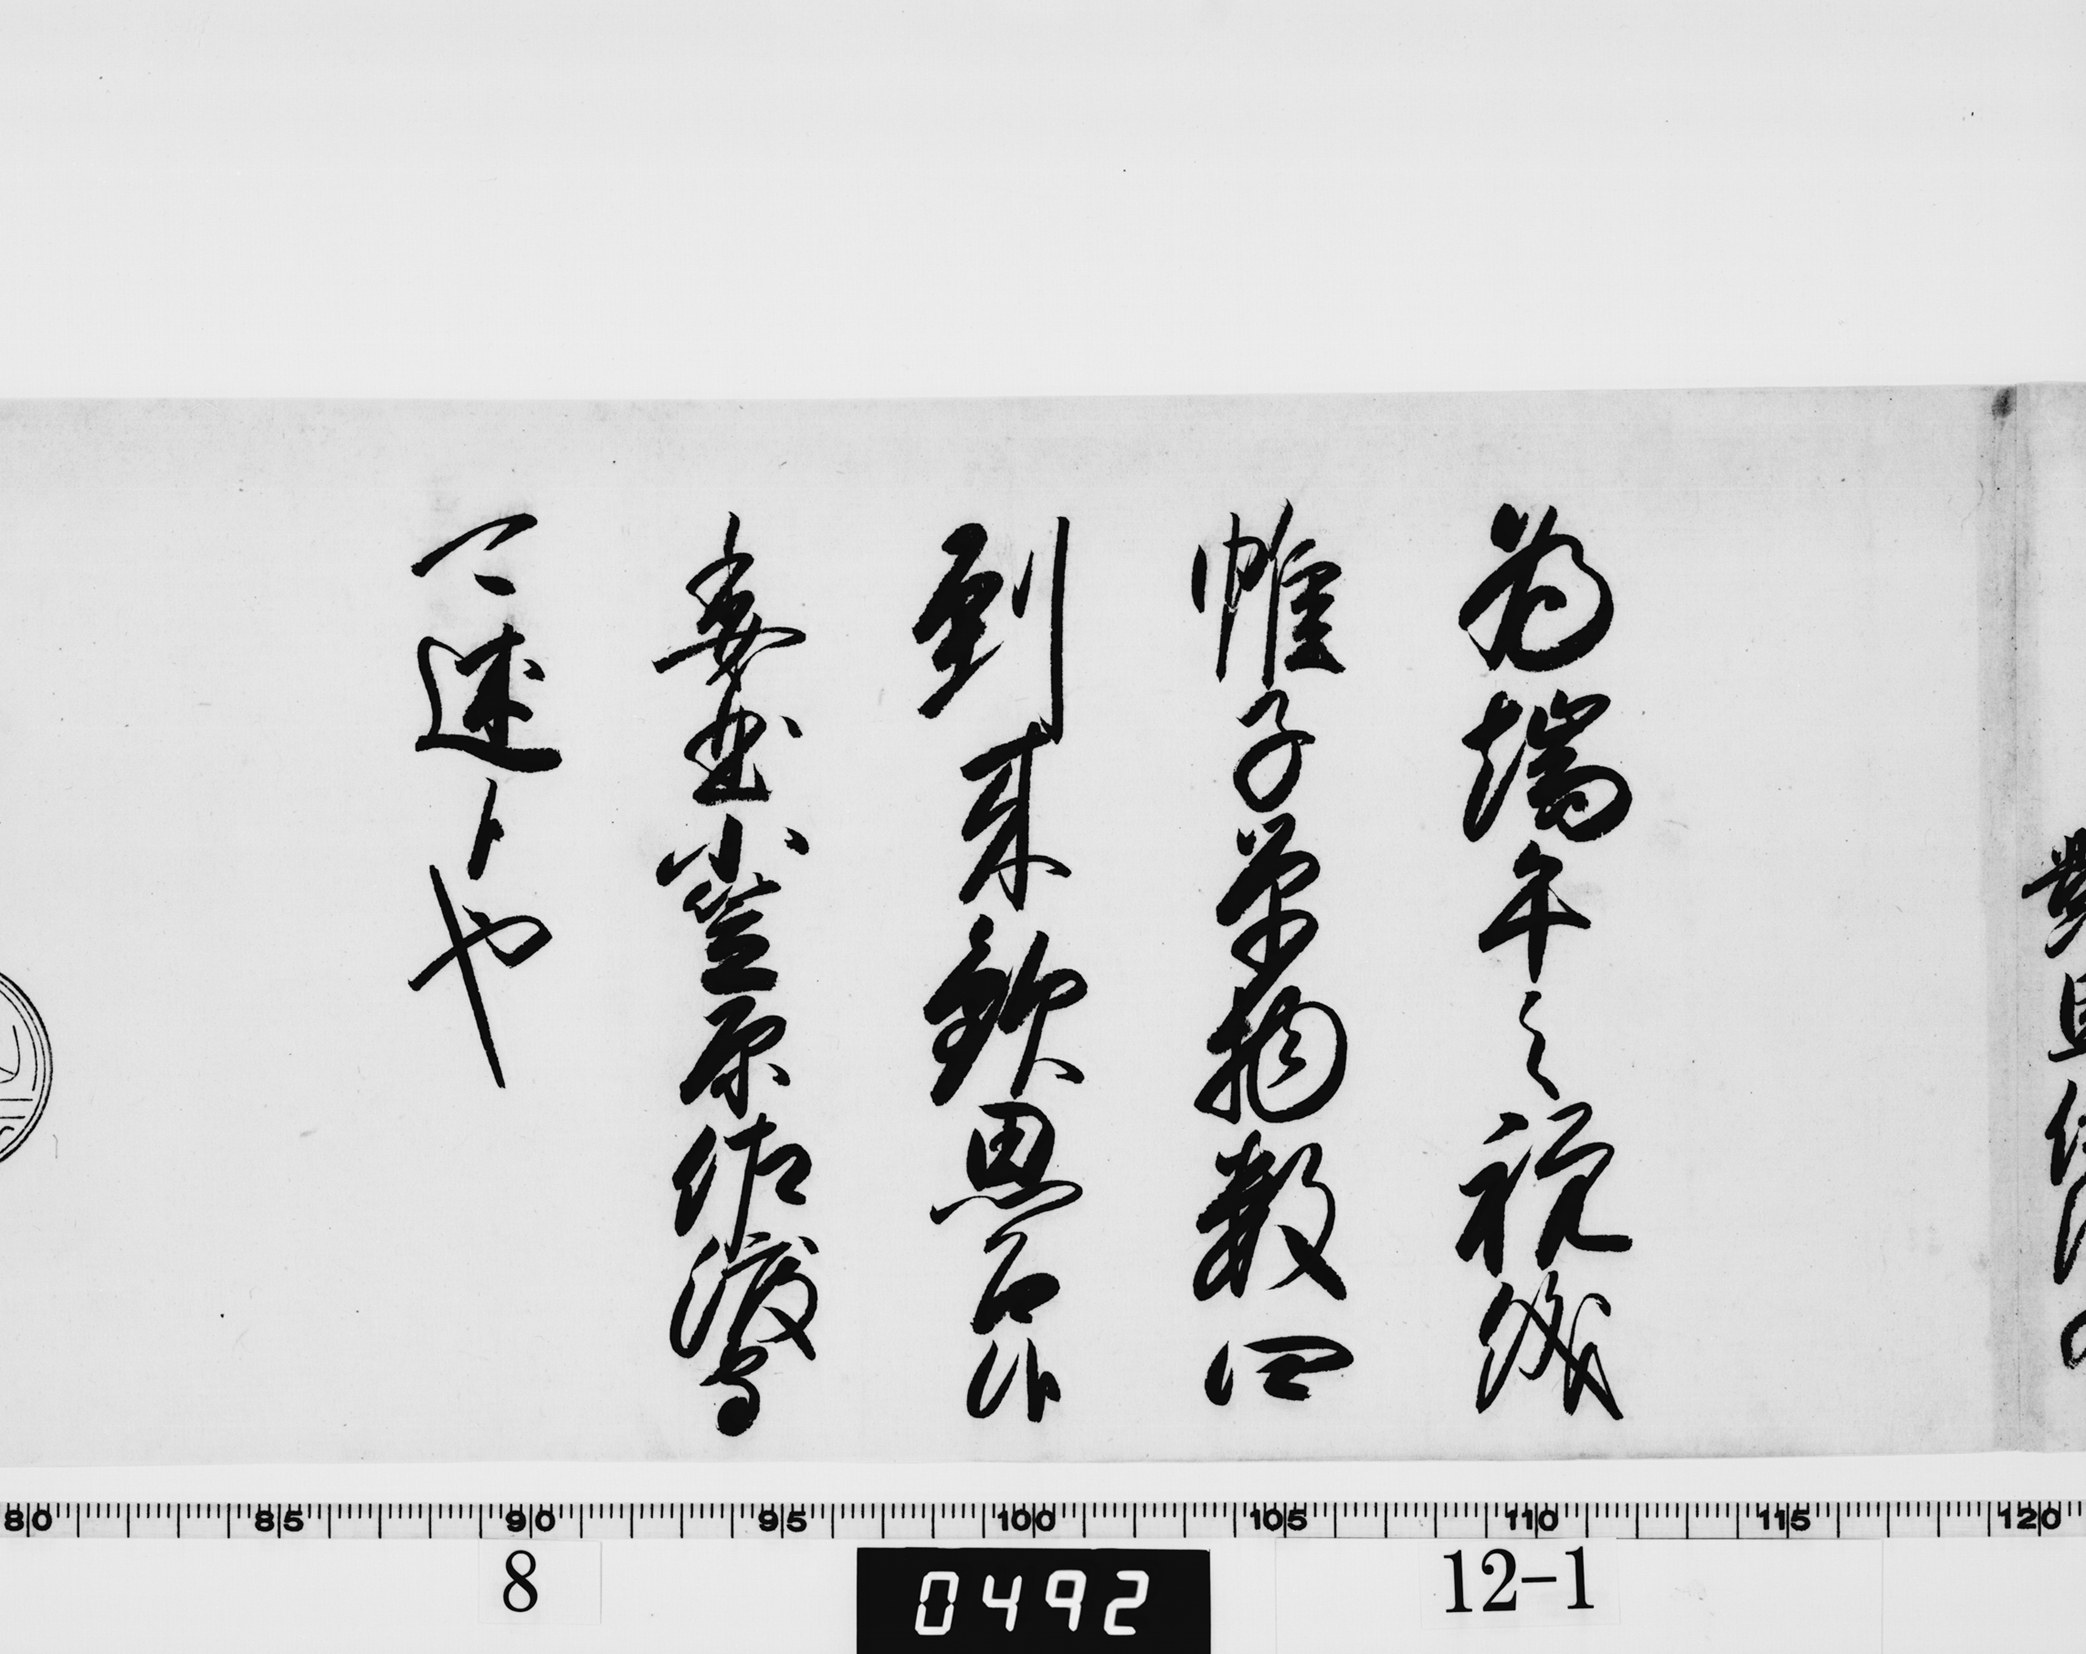 為端午之祝儀
帷子単物数四
到来欽思召候
委曲小笠原佐渡守
可述候也
80 85 90 95 100 105 110 115 120
8 0492 12-1